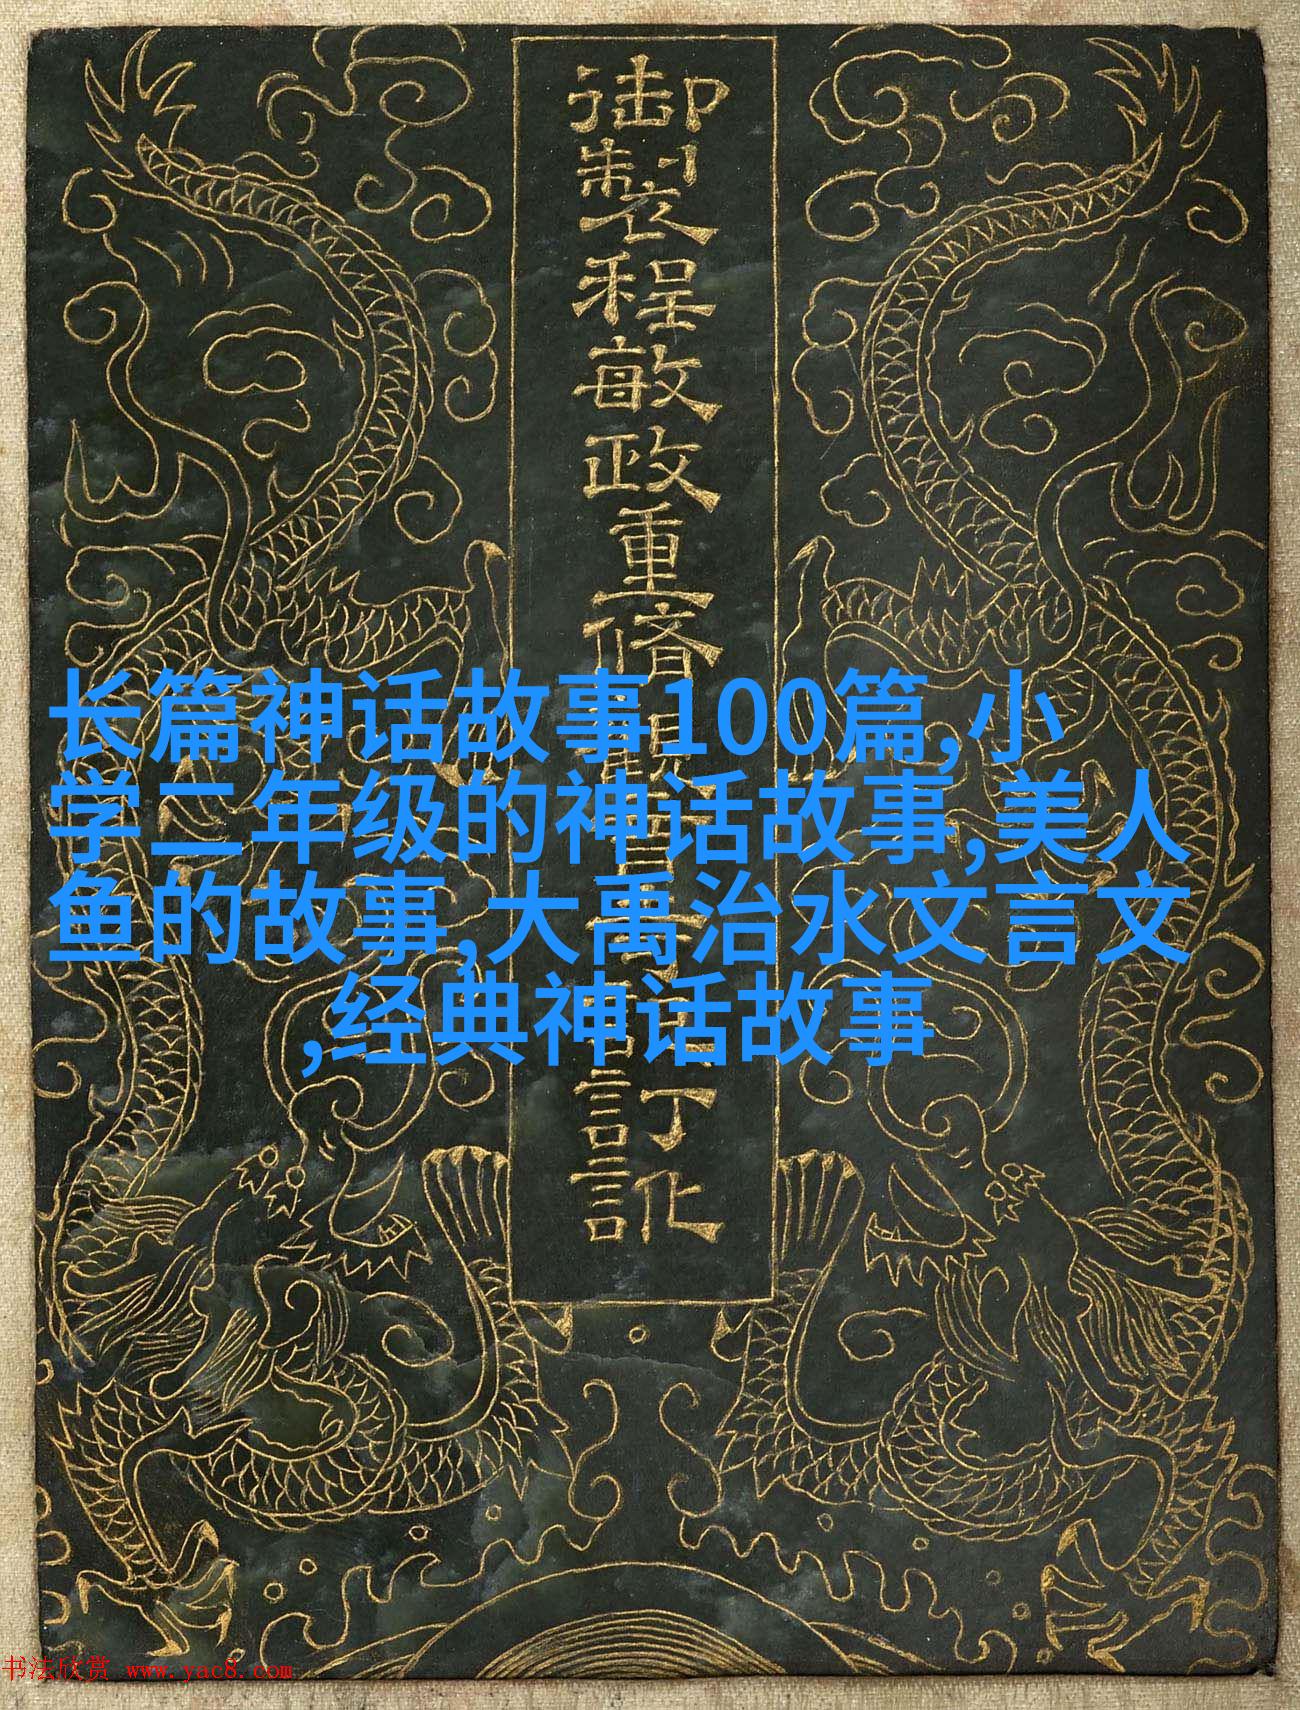 御製程敏政重脩
訂訛
长篇神话故事100篇,小
学二年级的神话故事,美人
鱼的故事,大禹治水文言文
,经典神话故事
书法欣赏 www.yac8.com